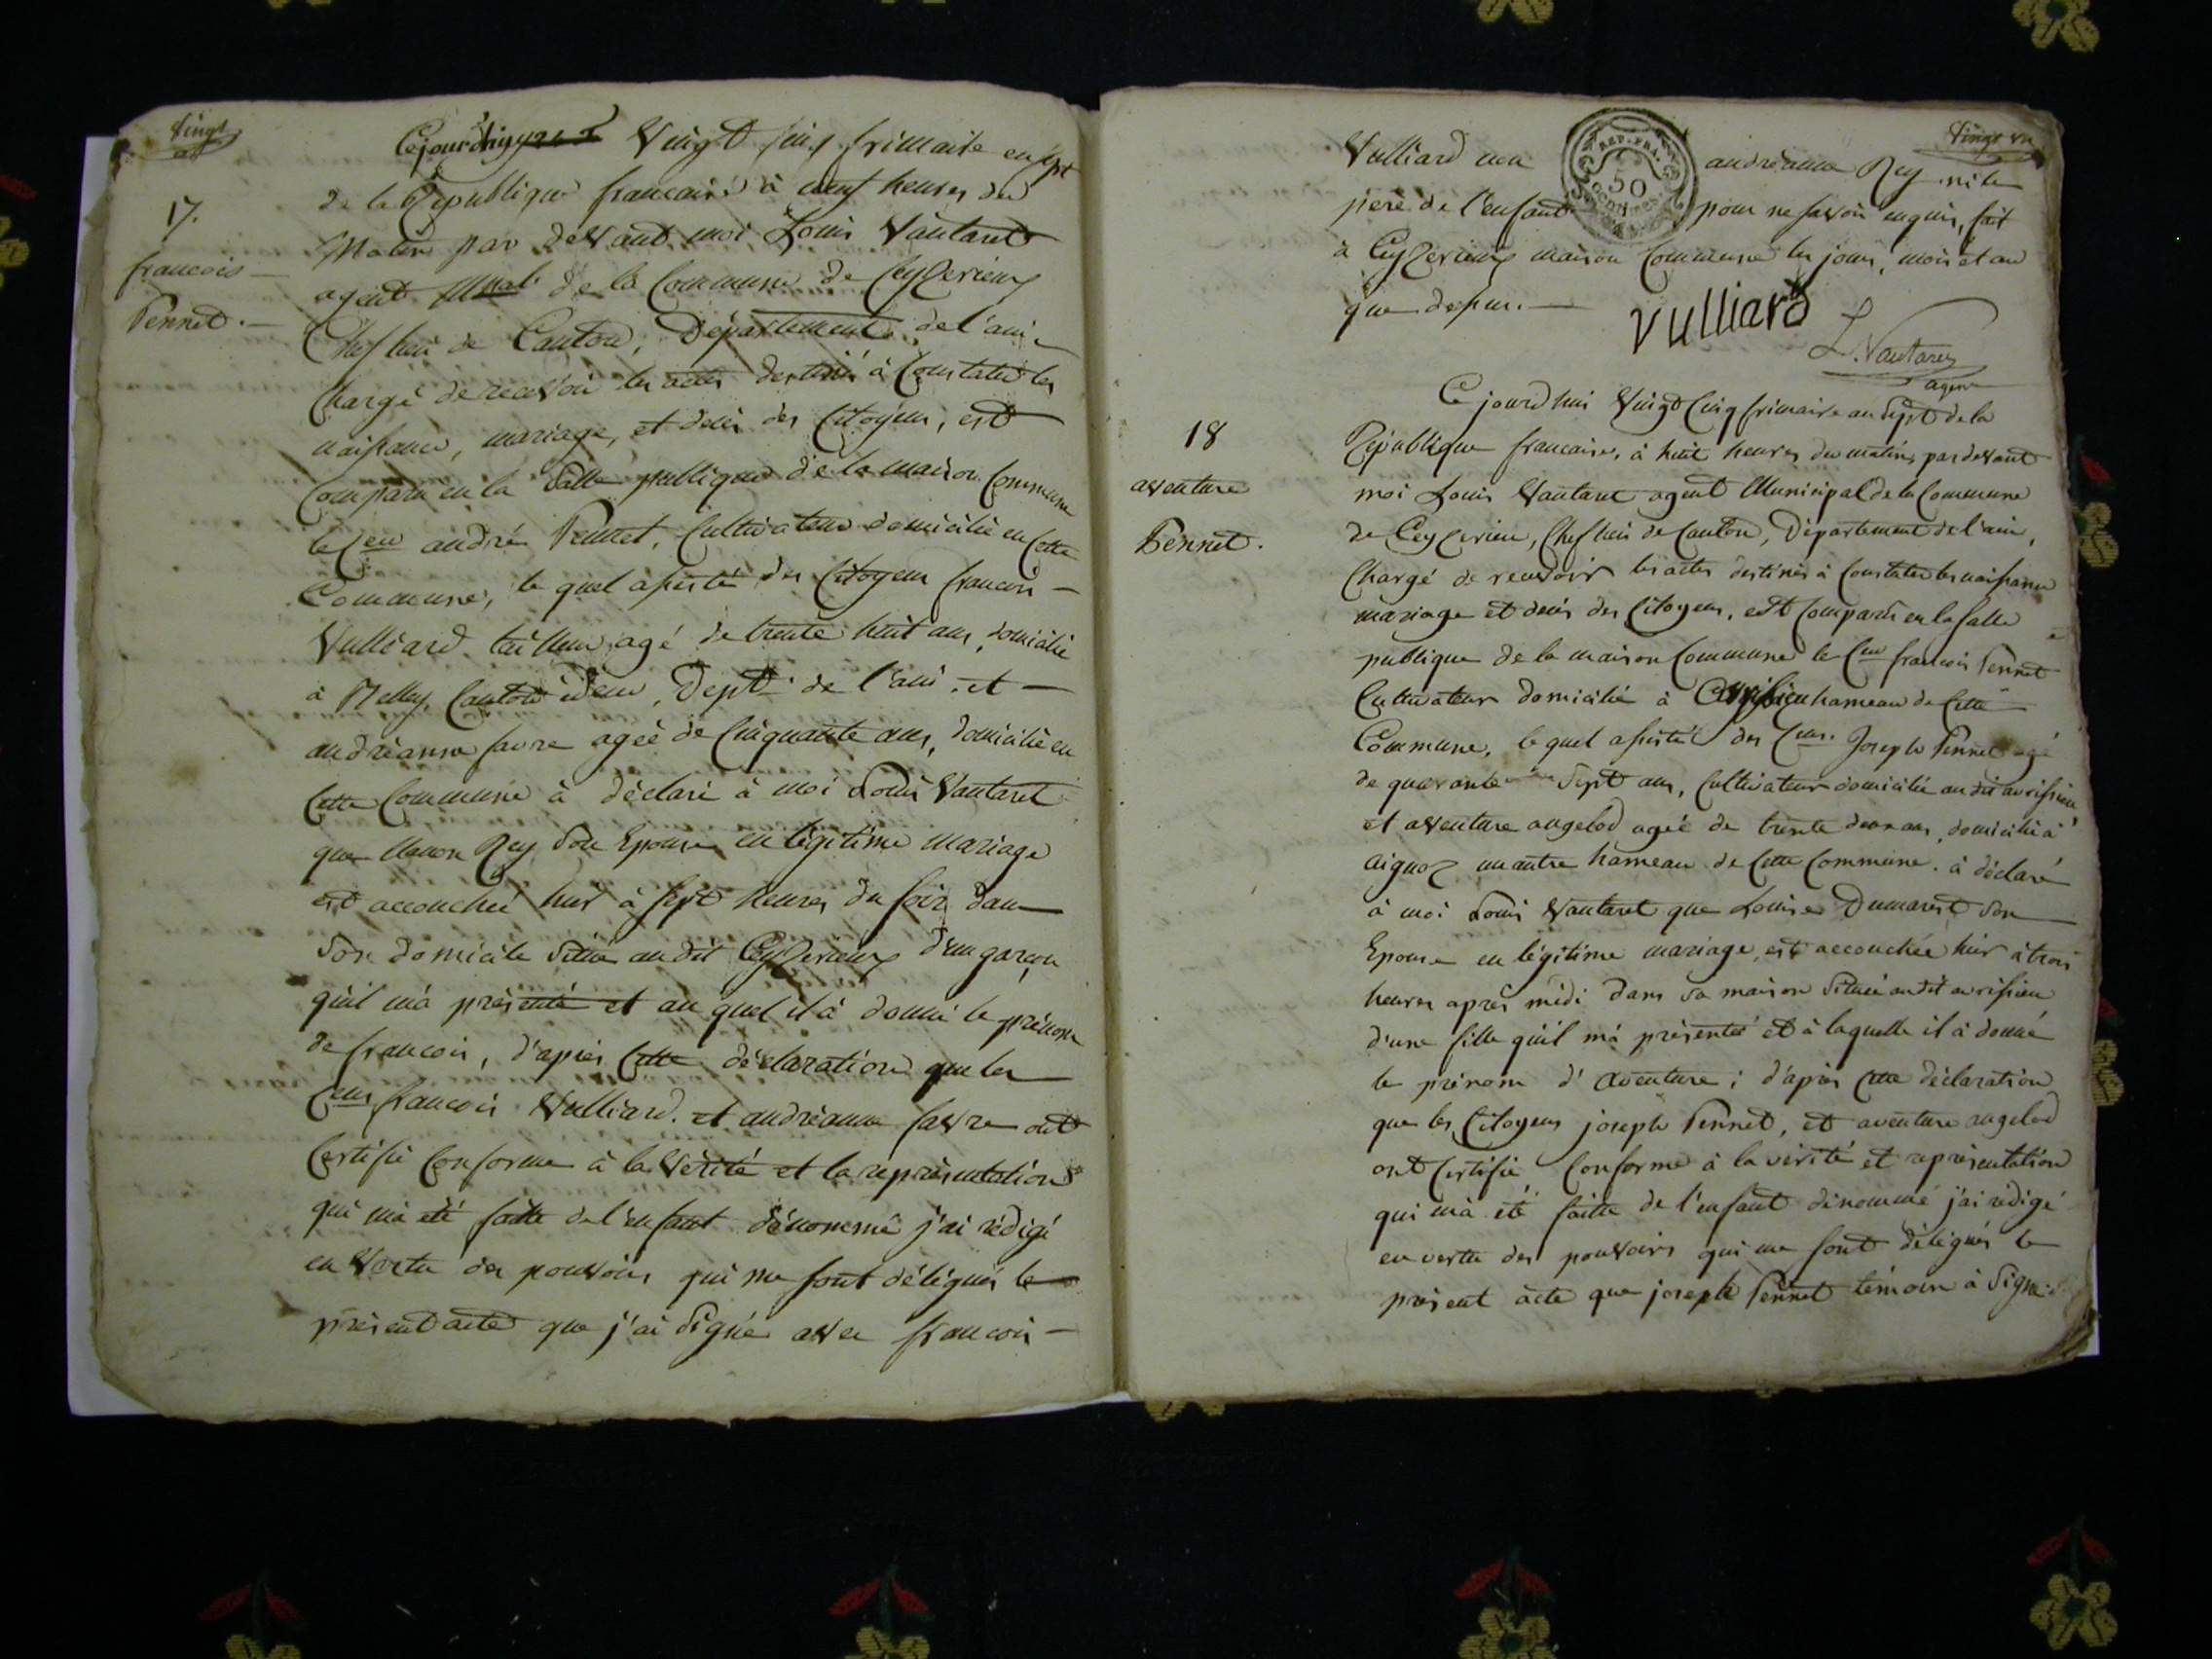 Vingt
17.
francois
Pennet.
Cejourdhuy Vingt cinq frimaire en sept
de la République francaise à neuf heures du
Matin par devant moi Louis Vautaret
agent Mpal de la Commune de Ceyzerieux
Cheflieu de Canton, Département de l'ain
Chargé de recevoir les actes destinés à Constater les
naissance, mariage, et décès des Citoyens, est
Comparu en la Salle publique de la maison Commune
le Cen andré Pennet, Cultivateur domicilié en Cette
Commune, le quel assisté des Citoyens francois
Vulliard tailleur, agé de trente huit ans, domicilié
à Canton idem, Dept de l'ain, et
andréanne favre agée de Cinquante ans, domiciliée en
Cette Commune à déclaré à moi Louis Vautaret
que Rey Son Epouse en légitime Mariage
est accouchée hier à sept heures du soir dans
Son domicile Situé au dit Ceyzerieux d'un garçon
qu'il m'a présenté et au quel il à donné le prénom
de francois, d'après Cette déclaration que les
Cens francois Vulliard et andréanne favre ont
Certifié Conforme à la Vérité et la représentation
qui m'à été faitte de l'enfant dénommé j'ai rédigé
en Vertu des pouvoirs qui me sont délégués le
présent acte que j'ai Signé avec francois
Vingt un
Vulliard non andréanne Rey ni le
père de l'enfant pour ne savoir enquis, fait
à Ceyzerieux maison Commune les jours, mois et an
que dessus.
REP. FRA.
50
Centimes
Vulliard
L. Vautaret
agent
18
aventure
Pennet.
Cejourd'hui Vingt Cinq frimaire an Sept de la
République francaise, à huit heures du matin, par devant
moi Louis Vautaret agent Municipal de la Commune
de Ceyzerieu, Cheflieu de Canton, Département de l'ain,
Chargé de recevoir les actes destinés à Constater les naissance
mariage et décès des Citoyens, est Comparu en la salle
publique de la maison Commune le Cen francois Pennet
Cultivateur domicilié à avrissieu hameau de Cette
Commune, le quel assisté des Cens. Joseph Pennet agé
de quarante Sept ans, Cultivateur domicilié au dit avrissieu
et aventure angelod agée de trente deux ans, domiciliée à
aignoz un autre hameau de Cette Commune. à déclaré
à moi Louis Vautaret que Louise Dumarest Son
Epouse en légitime mariage, est accouchée hier à trois
heures après midi Dans sa maison Située au dit avrissieu
d'une fille qu'il m'à présenté et à laquelle il à donné
le prénom d'aventure; d'après Cette déclaration
que les Citoyens joseph Pennet, et aventure angelod
ont Certifié Conforme à la vérité et représentation
qui m'à été faitte de l'enfant dénommé j'ai rédigé
en vertu des pouvoirs qui me sont délégués le
présent acte que joseph Pennet témoin à Signé